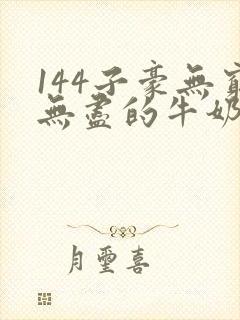 144子豪無窮
無盡的牛奶
月璽喜